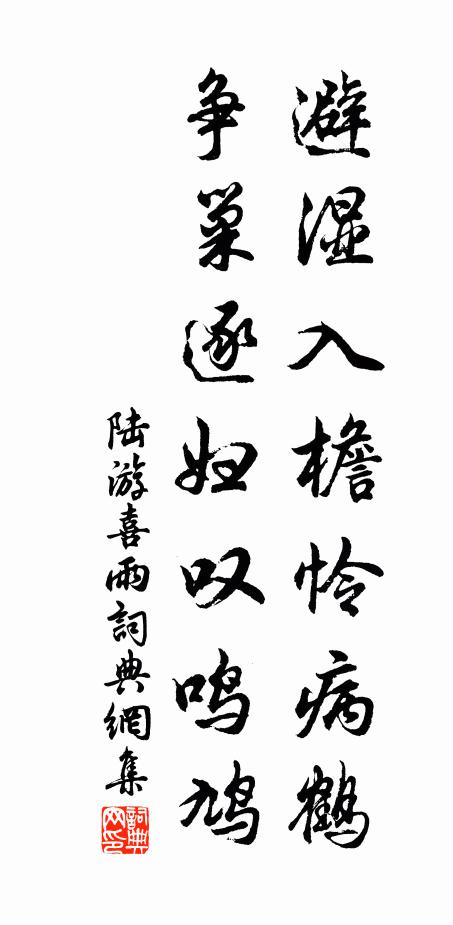 避湿入檐怜病鹤
争巢逐妇叹鸣鸠
陆游喜雨詞典網集
詞典
网印